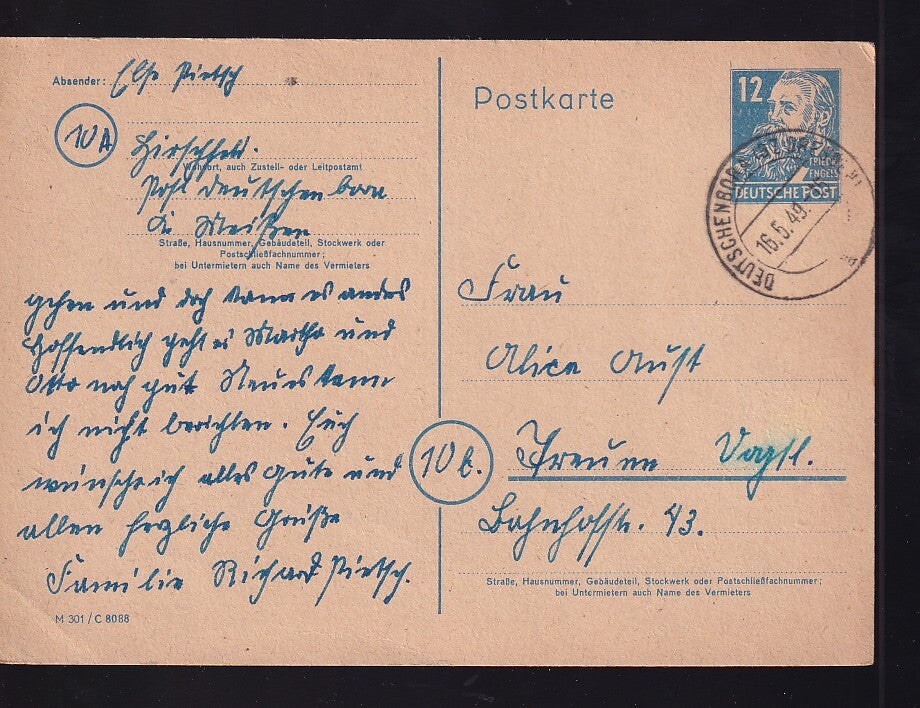 Absender: Else Pietsch
10A
Hirschfeld.
Wohnort, auch Zustell- oder Leitpostamt
Post Deutschenbora
Kr. Meißen
Straße, Hausnummer, Gebäudeteil, Stockwerk oder
Postschließfachnummer;
bei Untermietern auch Name des Vermieters
gehen und doch kann es anders
Hoffendlich geht es Martha und
Otto noch gut Neues kann
ich nicht berichten. Euch
wünsche ich alles Gute und
allen herzliche Grüße
Familie Richard Pietsch.
M 301 / C 8088
Postkarte
12
ENGELS
DEUTSCHE POST
DEUTSCHENBORA
16.5.49
Frau
Alice Aust
10b.
Treuen Vogtl.
Bahnhofstr. 43.
Straße, Hausnummer, Gebäudeteil, Stockwerk oder Postschließfachnummer;
bei Untermietern auch Name des Vermieters